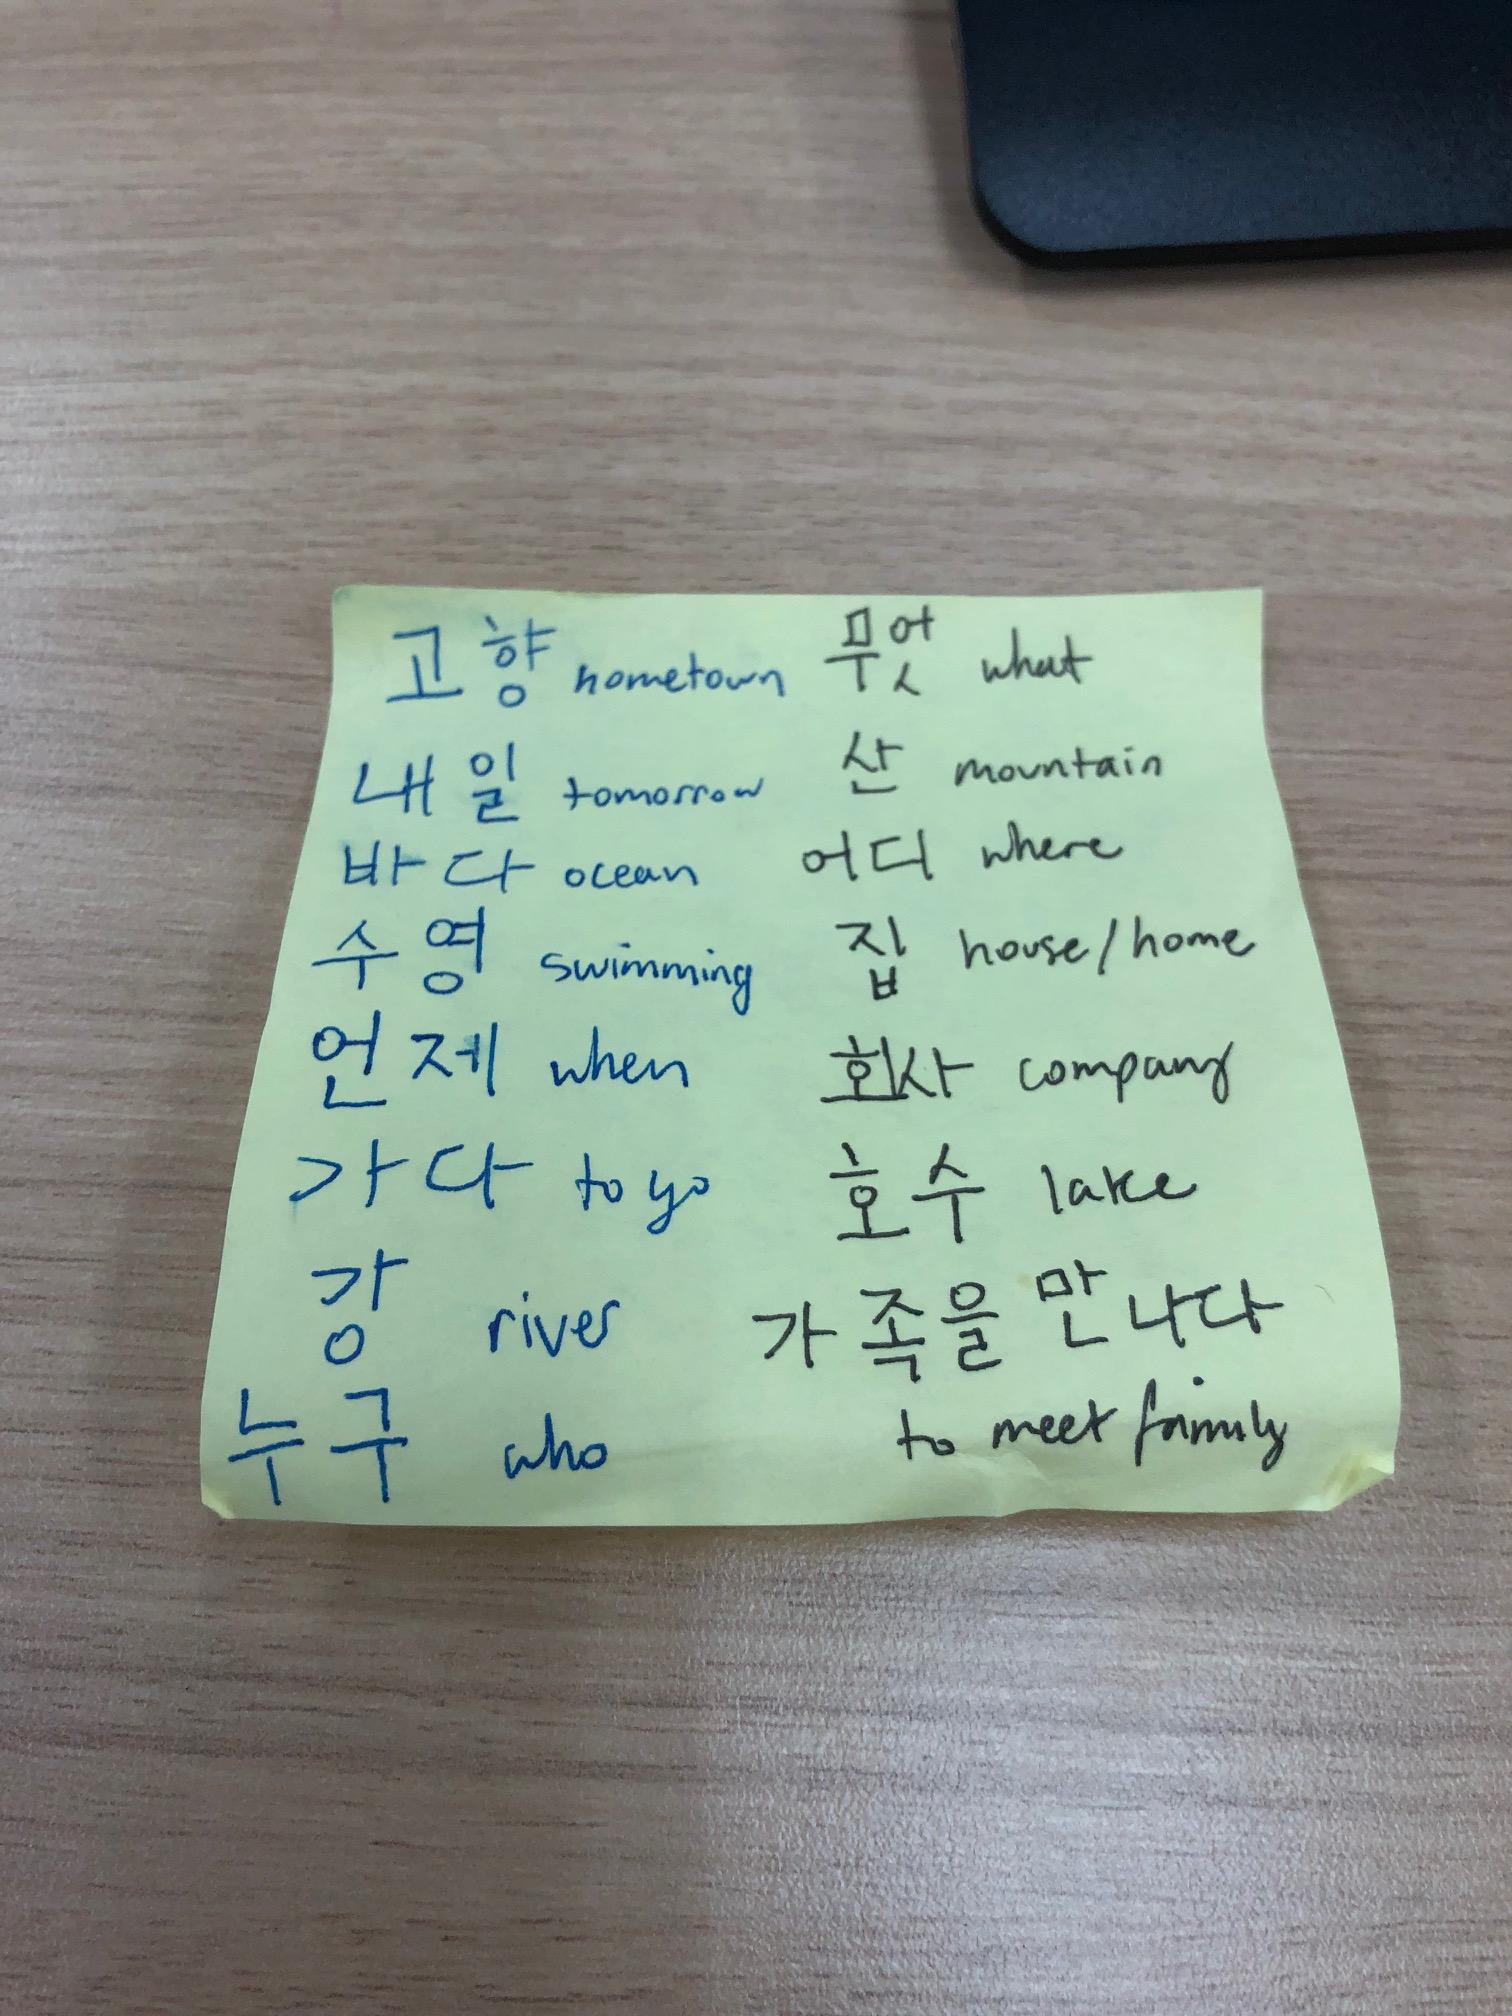 고향 hometown
내일 tomorrow
바다 ocean
수영 swimming
언제 when
가다 to go
강 river
누구 who
무엇 what
산 mountain
어디 where
집 house/home
회사 company
호수 lake
가족을 만나다
to meet family